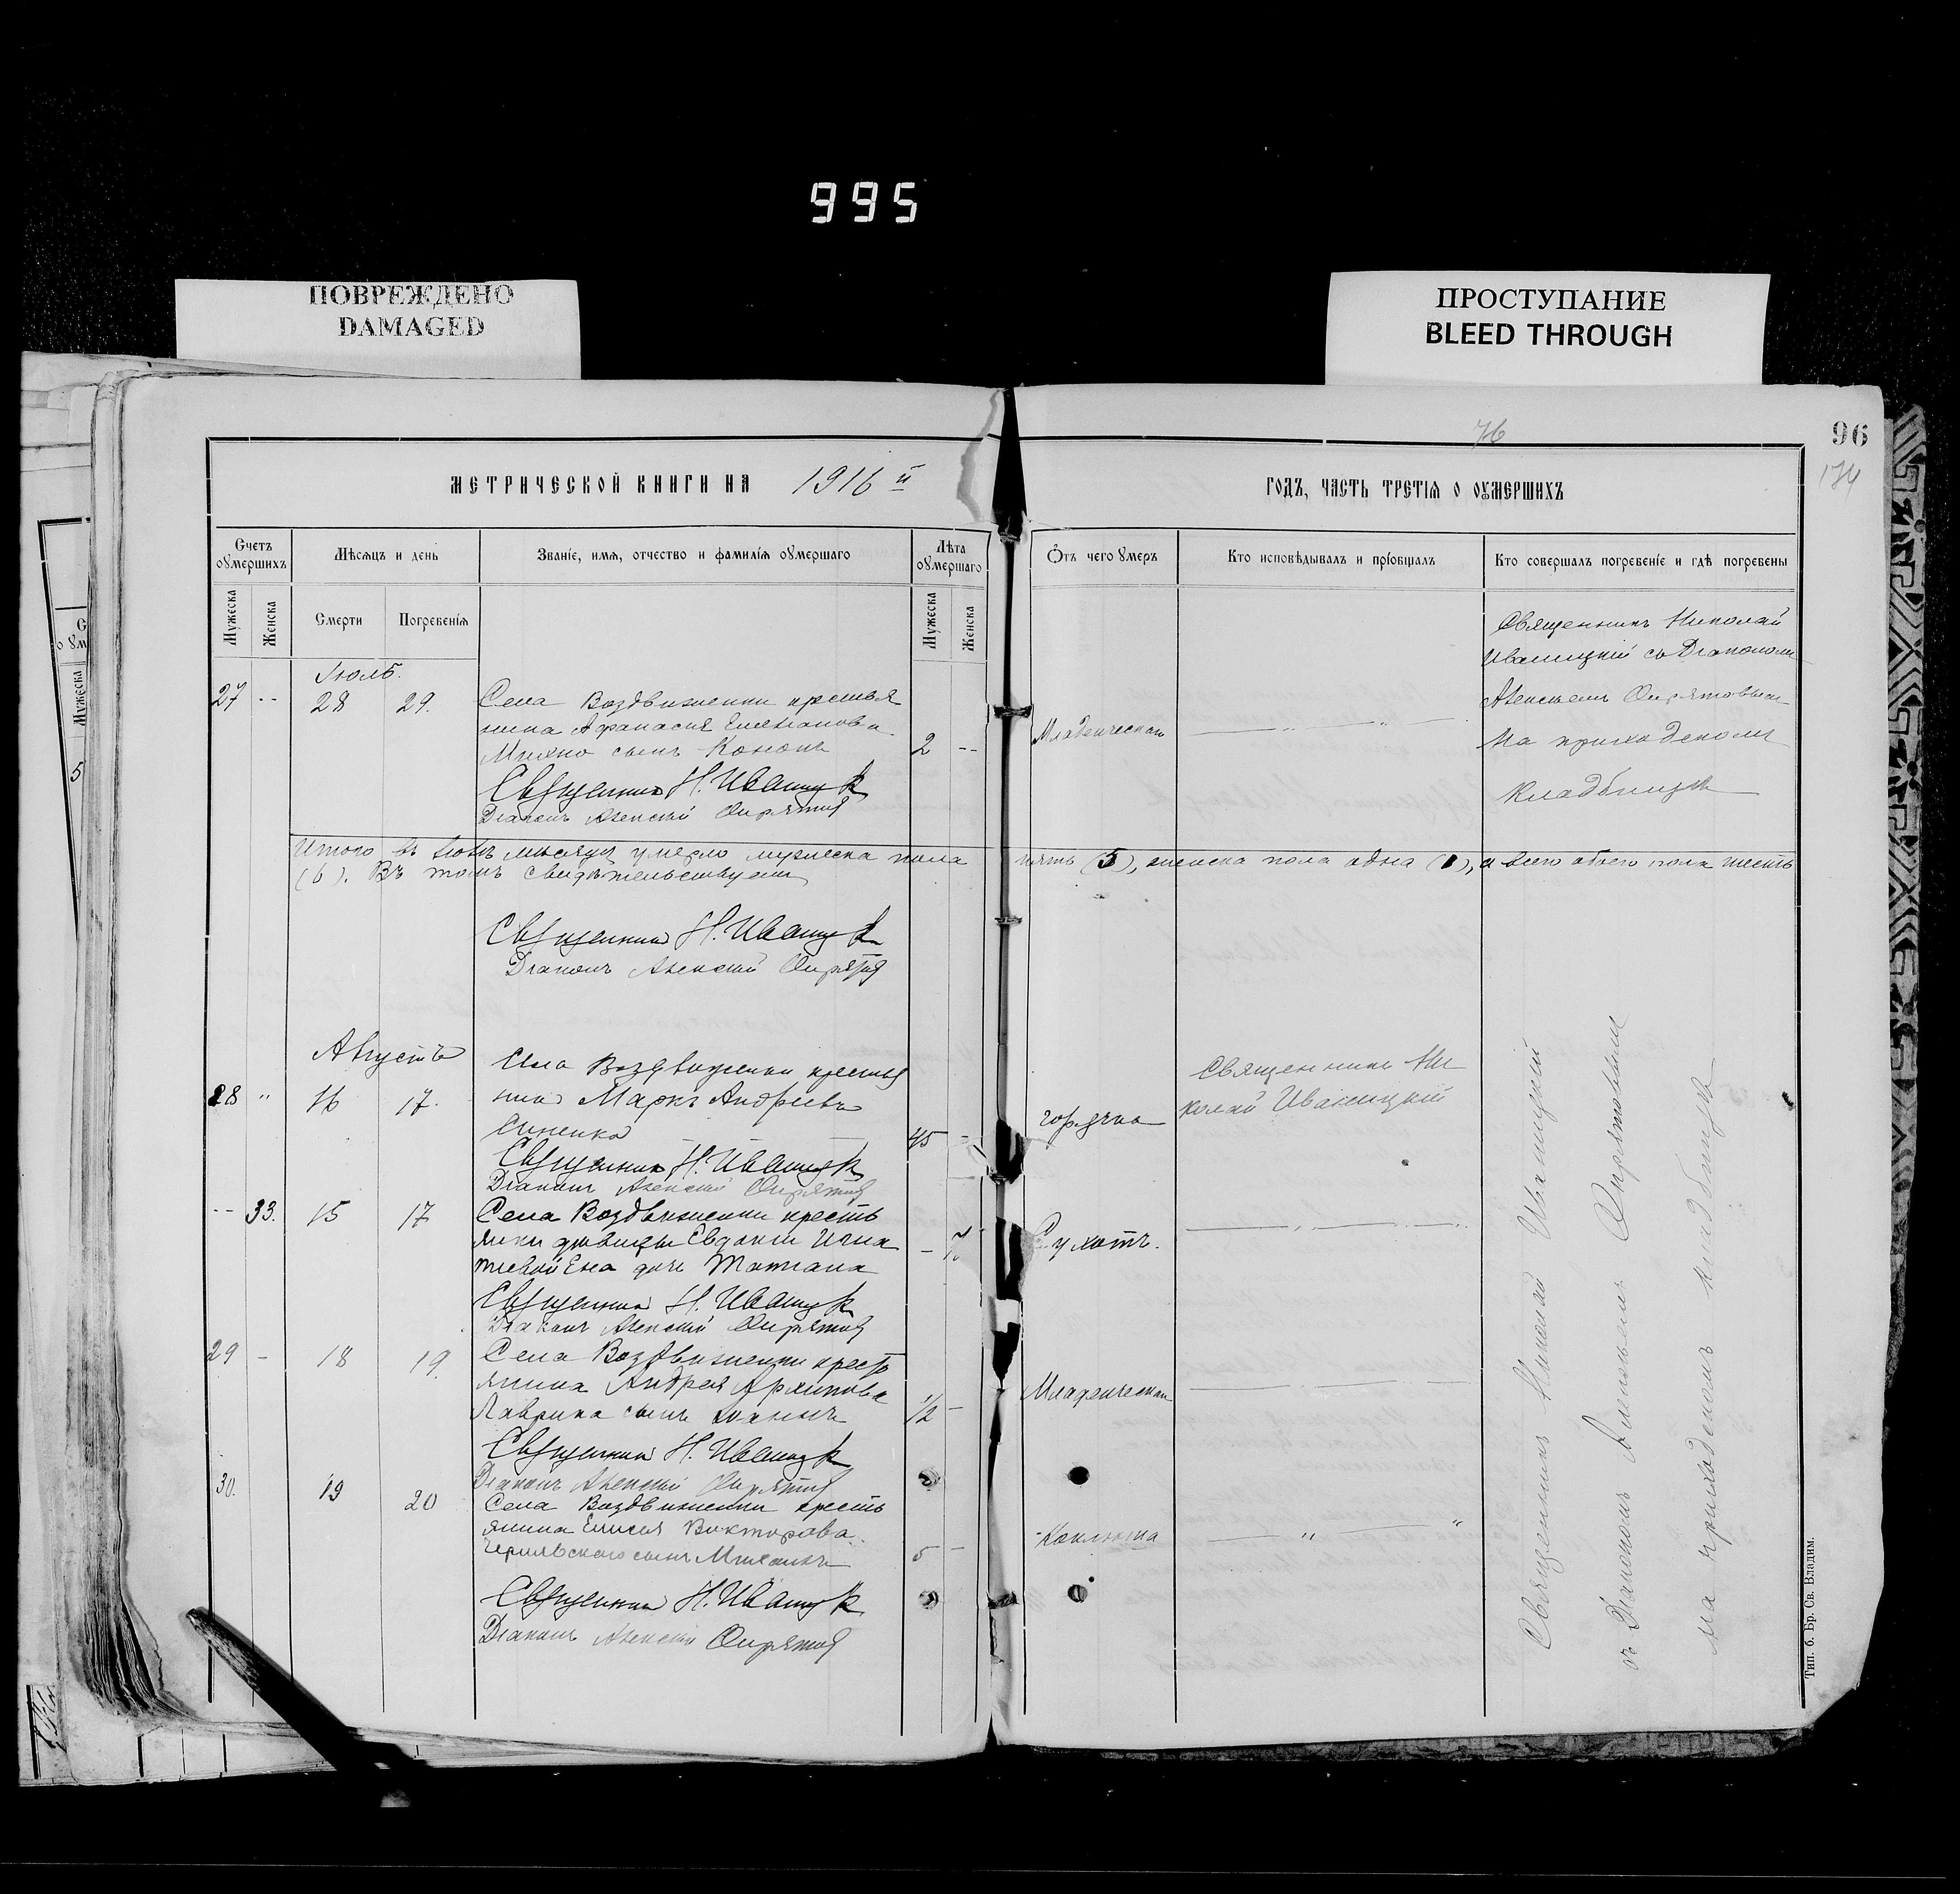 995
ПОВРЕЖДЕНО
DAMAGED
ПРОСТУПАНИЕ
BLEED THROUGH
76
96
174
МЕТРИЧЕСКОЙ КНИГИ НА 1916 й
ГОДЪ, ЧАСТЬ ТРЕТІЯ О ОУМЕРШИХЪ
Счетъ оумершихъ
Мѣсяцъ и день
Званіе, имя, отчество и фамилія оумершаго
Лѣта оумершаго
Отъ чего умеръ
Кто исповѣдывалъ и пріобщалъ
Кто совершалъ погребеніе и гдѣ погребены
Мужеска
Женска
Смерти
Погребенія
Мужеска
Женска
Іюль.
27 -- 28 29. Села Воздвиженки крестья
нина Афанасія Емеліанова
Михно сынъ Кононъ 2 -- Младенческая
Священникъ Н. Иваницкій
Діаконъ Алексій Опрятовъ
Священникъ Николай
Иваницкій съ Діакономъ
Алексіемъ Опрятовымъ
На приходскомъ
кладбищѣ
Итого въ Іюлѣ мѣсяцѣ умерло мужеска пола пять (5), женска пола одна (1), а всего обоего пола шесть
(6). Въ томъ свидѣтельствуемъ
Священникъ Н. Иваницкій
Діаконъ Алексій Опрятовъ
Августъ
28 " 16 17. Села Воздвиженки крестья
нинъ Маркъ Андреевъ
Синенко 45 - горячка
Священникъ Ни
колай Иваницкій
Священникъ Н. Иваницкій
Діаконъ Алексій Опрятовъ
-- 33. 15 17 Села Воздвиженки кресть
янки дѣвицы Евдокіи Игна
тіевой дочь Татіана - Сухотъ.
Священникъ Н. Иваницкій
Діаконъ Алексій Опрятовъ
29 - 18 19. Села Воздвиженки крест
янина Андрея Архипова
Лаврика сынъ Іоаннъ 1/2 - Младенческая
Священникъ Н. Иваницкій
Діаконъ Алексій Опрятовъ
30. 19 20 Села Воздвиженки кресть
янина Елисея Викторова
сынъ Михаилъ 5 - Коклюша
Священникъ Н. Иваницкій
Діаконъ Алексій Опрятовъ
Священникъ Николай Иваницкій
съ Діакономъ Алексіемъ Опрятовымъ
на приходскомъ кладбищѣ
Тип. б. Бр. Св. Владим.
5